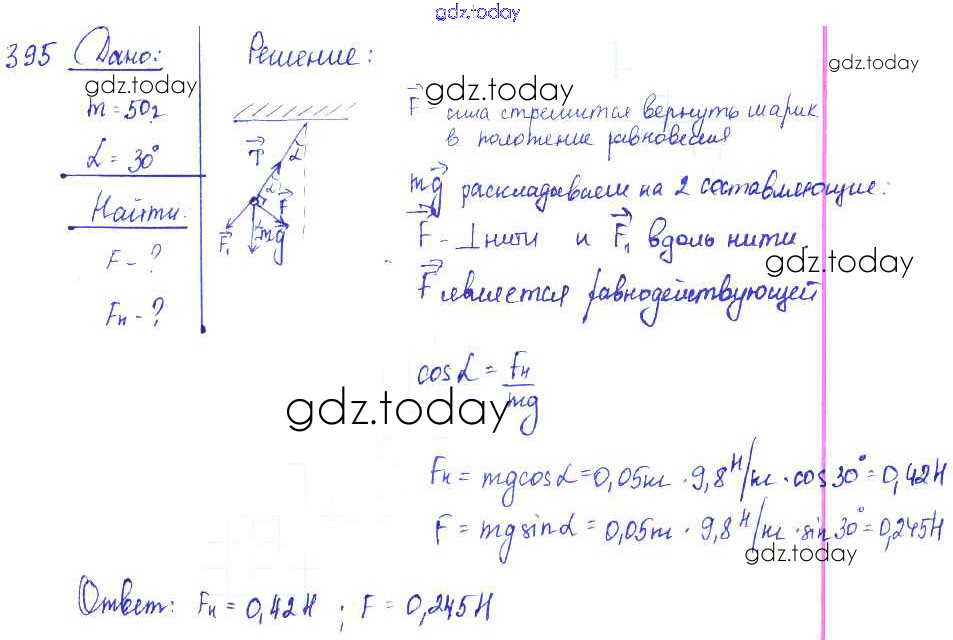 gdz.today
395 Дано:
Решение:
gdz.today
gdz.today
gdz.today
m = 50г
α = 30°
Найти:
F - ?
Fн - ?
T α
α F
F₁ mg
F - сила стремится вернуть шарик
в положение равновесия
mg раскладываем на 2 составляющие:
F - ⊥ нити и F₁ вдоль нити.
gdz.today
F является равнодействующей
cos α = Fн/mg
gdz.today
Fн = mg cos α = 0,05кг · 9,8 Н/кг · cos 30° = 0,42Н
F = mg sin α = 0,05кг · 9,8 Н/кг · sin 30° = 0,245Н
gdz.today
Ответ: Fн = 0,42Н ; F = 0,245Н